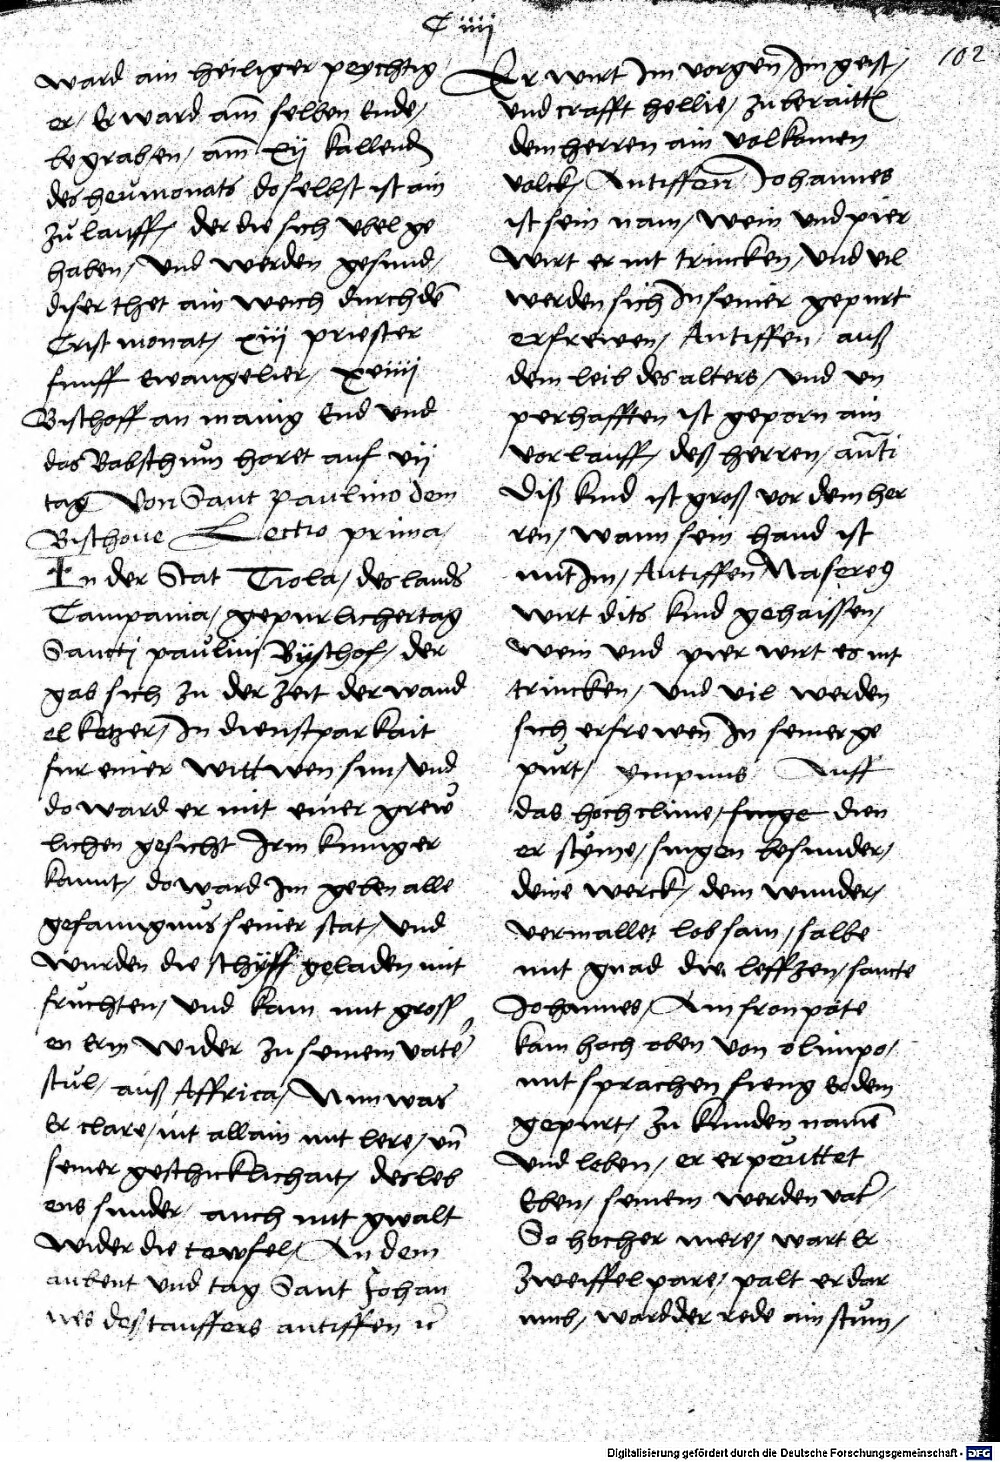 C iiij
102
ward ain heiliger peychtig
er / Er ward am̄ selben Ende /
begraben / am̄ xij kallend
des heŭmonats doselbst ist ain
zŭlauff / der die sich vbel ge
haben / Vnd werden gesund /
diser thet ain weich durch dē
Crist monat / xiij priester
funff Ewangelier / xviiij
Bischoff an manig End vnd
das Babsthŭm horet auf vij
tag Von Sant paulino dem
Bischoue Lectio prima /
In der Stat Tiola / des lands
Campania / gepurlicher tag
Sancti paulini Bÿschof / der
gab sich zu der zeit der wand
el ketzer / In dienstparkait
fur einer wittwen sun / Vnd
do ward er mit einer grew
lichen gesicht Irm kunig er
kannt / do ward Im geben alle
gefanngnŭs seiner stat / Vnd
wurden die schÿff geladen mit
frŭchten / vnd kam mit gross
en Ern wider zu seinem vater
stŭl / auß Affrica / Nun was
Er clare / nit allain mit lere / vn̄
seiner geschicklichait / des leb
ens sunder / auch mit gwalt
wider die tewfel / An dem
aubent vnd tag Sant Johan
nes des tauffers antiffen
Er wirt Im vorgen̄ Im geist /
Vnd crafft hellie / zu beraittē
dem herren ain volkomen
volck / Antiffen̄ Johannes
ist sein nam / wein vnd pier
wirt er nit trincken / Vnd vil
werden sich In seiner gepurt
erfrewen / Antiffen / auß
dem leib des alters / vnd vn
perhafften ist geporn ain
vorlauff / deß herren / an̄ti
Diß kind ist groß vor dem her
ren / wann sein hand ist
mit Im / Antiffen Nasereꝰ
wirt dits kind gehaissen /
wein vnd pier wirt es nit
trincken / vnd vil werden
sich erfrewen̄ In seiner ge
pŭrt / ympnus Auff
das hoch clime / singe dien
er stÿme / singen besunder /
deine werck / dem wunder /
vermallet lobsam / salbe
mit gnad die leffzen / sancte
Johannes / Am fronpote
kam hoch oben von olimpo /
mit sprachen fieng Er dem
gepurt / zu kunden namē
Vnd leben / er erpeŭttet
Eben / seinem werden vatr̄ /
So hocher mere / wart Er
zweiffelpare / palt er dar
umb / ward der rede ain stŭm /